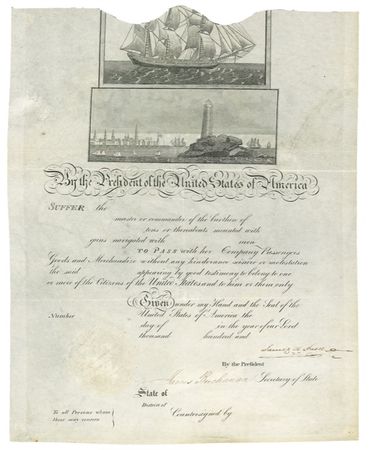 By the President of the United States of America
SUFFER the
master or commander of the burthen of
tons or thereabouts mounted with
guns navigated with men
TO PASS with her Company Passengers
Goods and Merchandize without any hinderance seisure or molestation
the said appearing by good testimony to belong to one
or more of the Citizens of the United States and to him or them only
Given under my Hand and the Seal of the
Number United States of America the
day of in the year of our Lord
thousand hundred and
James K Polk
By the President
James Buchanan Secretary of State
State of
District of
To all Persons whom Countersigned by
these may concern